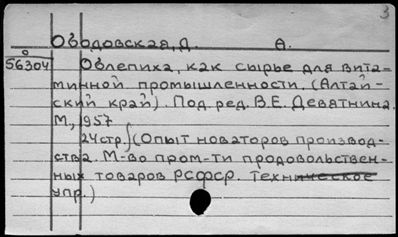 3
Оводовская, Д. А.
О
56304 Облепиха, как сырье для вита-
минной промышленности. (Алтай-
ский край). Под ред. В.Е. Девятнина.
М, 1957
24стр. (Опыт новаторов производ-
ства. М-во пром-ти продовольствен-
ных товаров РСФСР. Техническое
упр.)